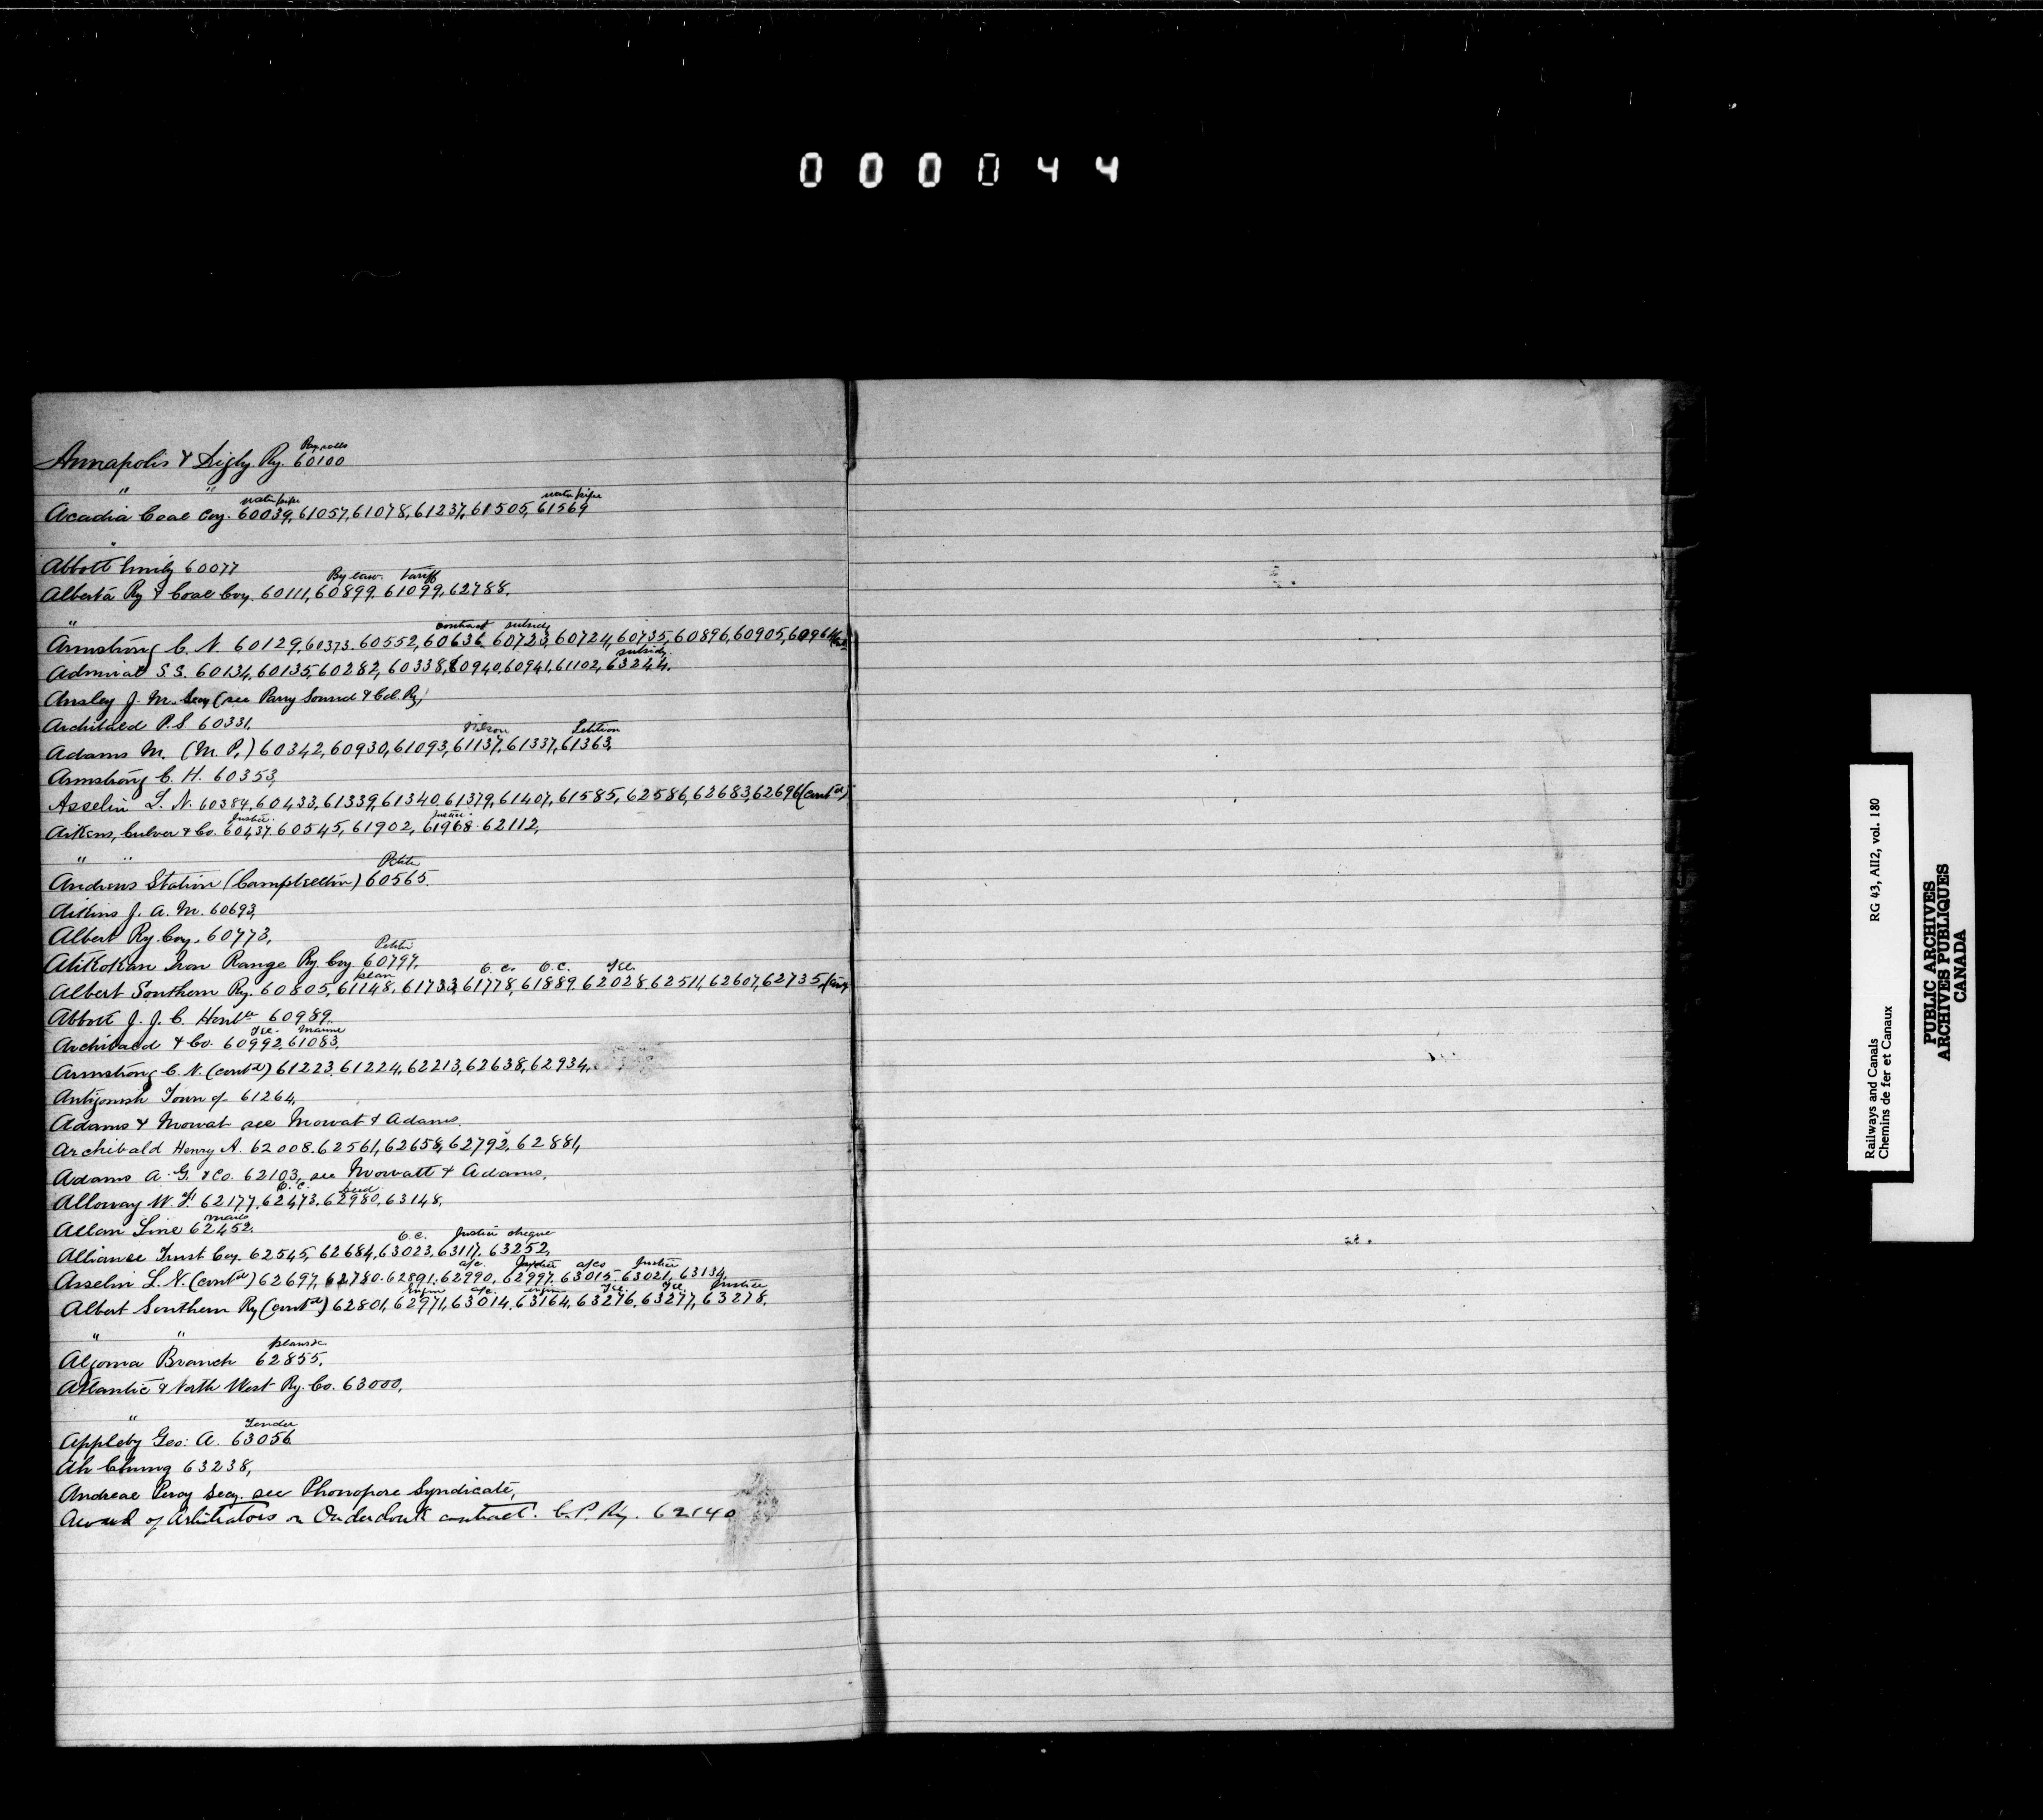 000044
Annapolis & Digby Ry. 60100
" "
water pipe water pipe
Acadia Coal Coy. 60039, 61057, 61078, 61237, 61505, 61569
"
Abbott Emily 60077
By law. Tariff
Alberta Ry & Coal Coy. 60111, 60899, 61099, 62788.
"
contract subsidy
Armstrong C. N. 60129, 60373. 60552, 60636. 60723, 60724, 60735, 60896, 60905, 60964
subsidy.
Admiral S.S. 60134, 60135, 60282, 60338, 60940, 60941, 61102, 63244.
Ansley J. M. Secy (see Parry Sound & Col. Ry)
Archibald P. S. 60331.
Petition
Adams M. (M. P.) 60342, 60930, 61093, 61137, 61337, 61363,
Armstrong C. H. 60353,
Asselin L. N. 60384, 60433, 61339, 61340, 61379, 61407, 61585, 62586, 62683, 62696 (contd)
Justice. Justice.
Aikens, Culver & Co. 60437. 60545, 61902, 61968. 62112,
" "
Petitn
Andrews Station (Campbellton) 60565.
Aikins J. A. M. 60693,
Albert Ry. Coy. 60773,
Petitn
Atikokan Iron Range Ry. Coy. 60797,
plan O. C. O. C. Tel.
Albert Southern Ry. 60805, 61148, 61733, 61778, 61889. 62028. 62511, 62607, 62735,
Abbott J. J. C. Honble 60989.
Tel. Marine
Archibald & Co. 60992, 61083,
Armstrong C. N. (contd) 61223, 61224, 62213, 62638, 62934,
Antigonish Town of 61264,
Adams & Mowat see Mowat & Adams.
Archibald Henry A. 62008. 62561, 62658, 62792, 62881,
Adams A. G. & Co. 62103, see Mowatt & Adams,
O. C. Deed.
Alloway W. F. 62177, 62473, 62980, 63148,
Mails
Allan Line 62452.
O. C. Justice cheque
Alliance Trust Coy. 62545, 62684, 63023, 63117, 63252,
a/c. Justice a/cs Justice
Asselin L. N. (contd) 62697, 62780. 62891, 62990, 62997. 63015. 63021, 63134
a/c. Tel. Tel. Justice
Albert Southern Ry (contd) 62801, 62971, 63014, 63164, 63276, 63277, 63278.
" "
Algoma Branch 62855,
Atlantic & North West Ry. Co. 63000,
"
Tender
Appleby Geo: A. 63056
Ah Chung 63238,
Andreae Percy Secy. see Phonopore Syndicate,
Award of Arbitrators on Onderdonk contract. C. P. Ry. 62140
Railways and Canals RG 43, AII2, vol. 180
Chemins de fer et Canaux
PUBLIC ARCHIVES
ARCHIVES PUBLIQUES
CANADA